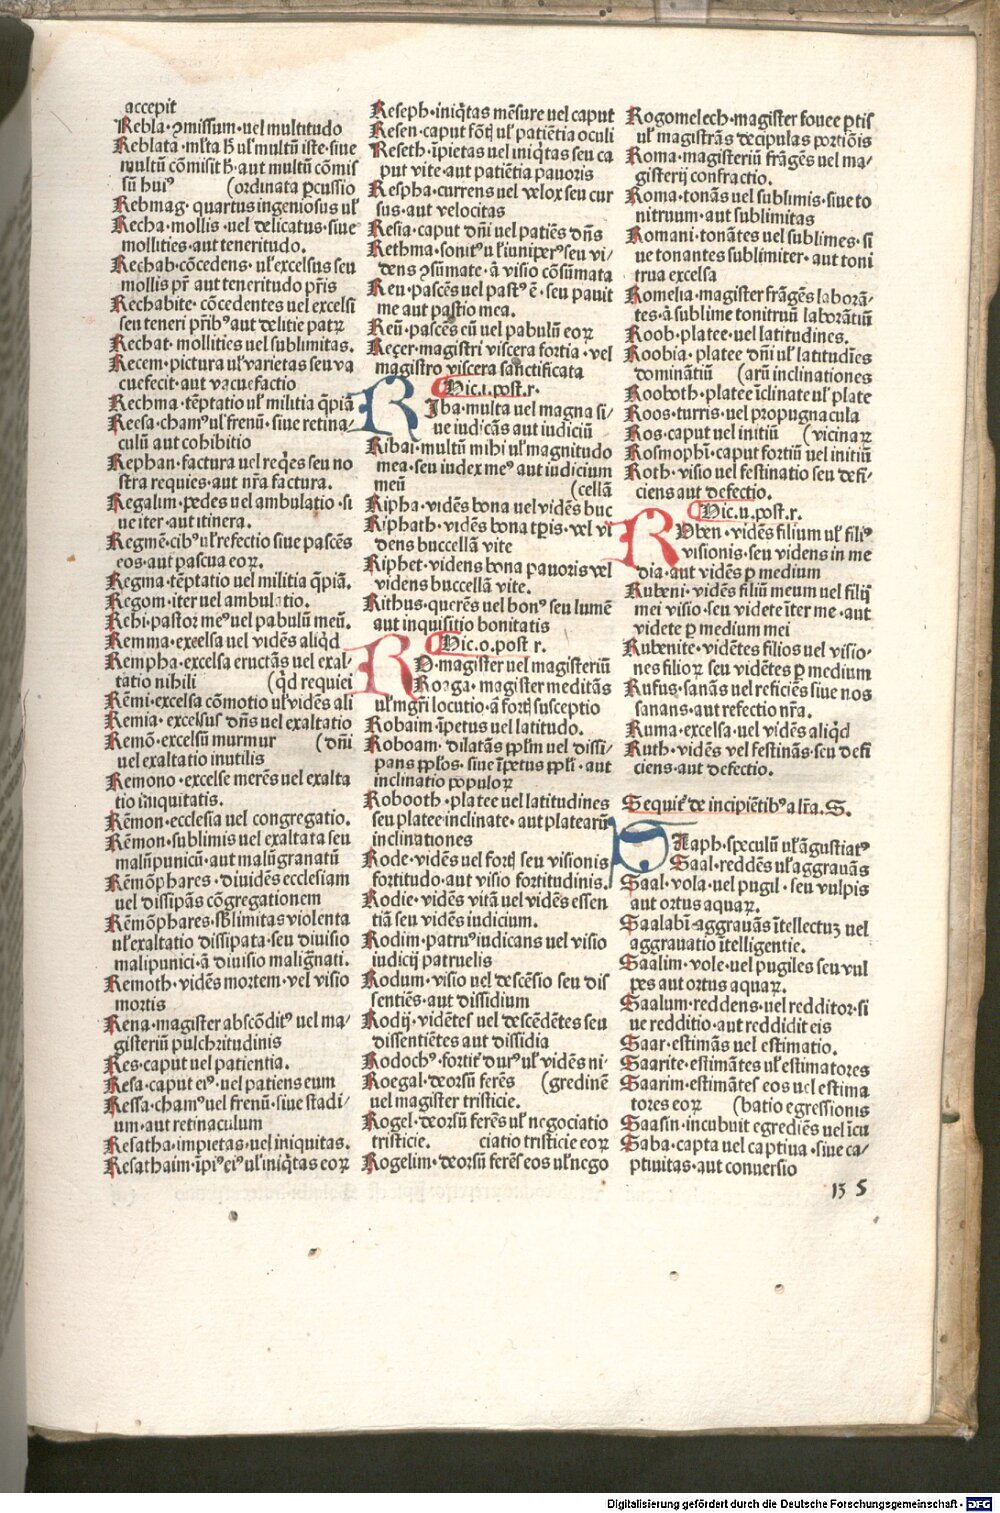 accepit
Rebla·ꝯmissum·uel multitudo
Reblata·ml̄ta h̄ ul̄ multū iste·siue
multū cōmisit h̄·aut multū cōmis
sū huiꝰ (ordinata ꝑcussio
Rebmag·quartus ingeniosus ul̄
Recha·mollis·uel delicatus·siue
mollities·aut teneritudo.
Rechab·cōcedens·ul̄ excelsus seu
mollis pr̄ aut teneritudo pr̄is
Rechabite·cōcedentes uel excelsi
seu teneri pr̄ibꝰ aut delitie patꝝ
Rechat·mollities uel sublimitas.
Recem·pictura ul̄ varietas seu va
cuefecit·aut vacuefactio
Rechma·tēptatio ul̄ militia q̄piā
Recsa·chamꝰ ul̄ frenū·siue retina/
culū aut cohibitio
Rephan·factura uel reqͥes seu no
stra requies·aut nr̄a factura.
Regalim·pedes uel ambulatio·si
ue iter·aut itinera.
Regmē·cibꝰ ul̄ refectio siue pascēs
eos·aut pascua eoꝝ.
Regma·tēptatio uel militia q̄piā.
Regom·iter uel ambulatio.
Rehi·pastor meꝰ uel pabulū meū.
Remma·excelsa uel vidēs aliqͥd
Rempha·excelsa eructās uel exal/
tatio nihili (qd̄ requiei
Rēmi·excelsa cōmotio ul̄ vidēs ali
Remia·excelsus dn̄s uel exaltatio
Remō·excelsū murmur (dn̄i
uel exaltatio inutilis
Remono·excelse merēs uel exalta
tio iniquitatis.
Rēmon·ecclesia uel congregatio.
Rēmon·sublimis uel exaltata seu
malū punicū·aut malū granatū
Rēmōphares·diuidēs ecclesiam
uel dissipās cōgregationem
Rēmōphares·sb̄limitas violenta
ul̄ exaltatio dissipata·seu diuisio
mali punici·ā diuisio malignati.
Remoth·vidēs mortem·vel visio
mortis
Rena·magister abscōditꝰ uel ma/
gisteriū pulchritudinis
Res·caput uel patientia.
Resa·caput eiꝰ·uel patiens eum
Ressa·chamꝰ uel frenū·siue stadi/
um·aut retinaculum
Resatha·impietas·uel iniquitas.
Resathaim·īpiꝰ eiꝰ ul̄ iniqͥtas eoꝝ
Reseph·iniqͥtas mēsure uel caput
Resen·caput fōtꝭ ul̄ patiētia oculi
Reseth·īpietas uel iniqͥtas seu ca
put vite·aut patiētia pauoris
Respha·currens uel velox seu cur
sus·aut velocitas
Resia·caput dn̄i uel patiēs dn̄s
Rethma·sonitꝰ ul̄ iuniperꝰ seu vi/
dens ꝯsūmate·ā visio cōsūmata
Reu·pascēs uel pastꝰ ē·seu pauit
me aut pastio mea.
Reū·pascēs eū uel pabulū eoꝝ
Reçer·magistri viscera fortia·vel
magistro viscera sanctificata
Hic.i.post.r.
RIba·multa uel magna si/
ue iudicās aut iudiciū
Ribai·multū mihi ul̄ magnitudo
mea·seu iudex meꝰ aut iudicium
meū (cellā
Ripha·vidēs bona uel vidēs buc
Riphath·vidēs bona tꝑis·vel vi
dens buccellā vite
Riphet·videns bona pauoris vel
videns buccellā vite.
Rithus·querēs uel bonꝰ seu lumē
aut inquisitio bonitatis
Hic.o.post r.
RO·magister uel magisteriū
Roaga·magister meditās
ul̄ mgr̄i locutio·ā fortꝭ susceptio
Robaim·īpetus uel latitudo.
Roboam·dilatās ppl̄m uel dissi/
pans ppl̄os·siue īpetus ppl̄i·aut
inclinatio populoꝝ
Robooth·platee uel latitudines
seu platee inclinate·aut platearū
inclinationes
Rode·vidēs uel fortꝭ seu visionis
fortitudo·aut visio fortitudinis.
Rodie·vidēs vitā uel vidēs essen
tiā seu vidēs iudicium.
Rodim·patruꝰ iudicans uel visio
iudicij patruelis
Rodum·visio uel descēsio seu dis
sentiēs·aut dissidium
Rodij·vidētes uel descēdētes seu
dissentiētes aut dissidia
Rodochꝰ·fortit̄ durꝰ ul̄ vidēs ni·
Roegal·deorsū ferēs (gredinē
uel magister tristicie.
Rogel·deorsū ferēs ul̄ negociatio
tristicie. ciatio tristicie eoꝝ
Rogelim·deorsū ferēs eos ul̄ nego
Rogomelech·magister fouee ꝑtis
ul̄ magistrās decipulas portiōis
Roma·magisteriū frāgēs uel ma/
gisterij confractio.
Roma·tonās uel sublimis·siue to
nitruum·aut sublimitas
Romani·tonātes uel sublimes·si
ue tonantes sublimiter·aut toni
trua excelsa
Romelia·magister frāgēs laborā/
tes·ā sublime tonitruū laborātiū
Roob·platee·uel latitudines.
Roobia·platee dn̄i ul̄ latitudīes
dominātiū (arū inclinationes
Rooboth·platee īclinate ul̄ plate
Roos·turris·uel propugnacula
Ros·caput uel initiū (vicinaꝝ
Rosmophī·caput fortiū uel initiū
Roth·visio uel festinatio seu defi/
ciens aut defectio.
Hic.u.post.r.
RUben·vidēs filium ul̄ filiꝰ
visionis·seu videns in me
dia·aut vidēs ꝑ medium
Rubeni·vidēs filiū meum uel filij
mei visio·seu videte īter me·aut
videte ꝑ medium mei
Rubenite·vidētes filios uel visio·
nes filioꝝ seu vidētes ꝑ medium
Rufus·sanās uel reficiēs siue nos
sanans·aut refectio nr̄a.
Ruma·excelsa·uel vidēs aliqͥd
Ruth·vidēs vel festinās·seu defi
ciens·aut defectio.
Sequit̄ de incipiētibꝰ a lr̄a.S.
SAaph·speculū ul̄ āgustiatꝰ
Saal·reddēs ul̄ aggrauās
Saal·vola·uel pugil·seu vulpis
aut ortus aquaꝝ.
Saalabī·aggrauās ītellectuꝫ uel
aggrauatio ītelligentie.
Saalim·vole·uel pugiles seu vul
pes aut ortus aquaꝝ.
Saalum·reddens·uel redditor·si
ue redditio·aut reddidit eis
Saar·estimās uel estimatio.
Saarite·estimātes ul̄ estimatores
Saarim·estimātes eos uel estima
tores eoꝝ (batio egressionis
Saasin·incubuit egrediēs uel īcu
Saba·capta uel captiua·siue ca/
ptiuitas·aut conuersio
13 5
Digitalisierung gefördert durch die Deutsche Forschungsgemeinschaft - DFG